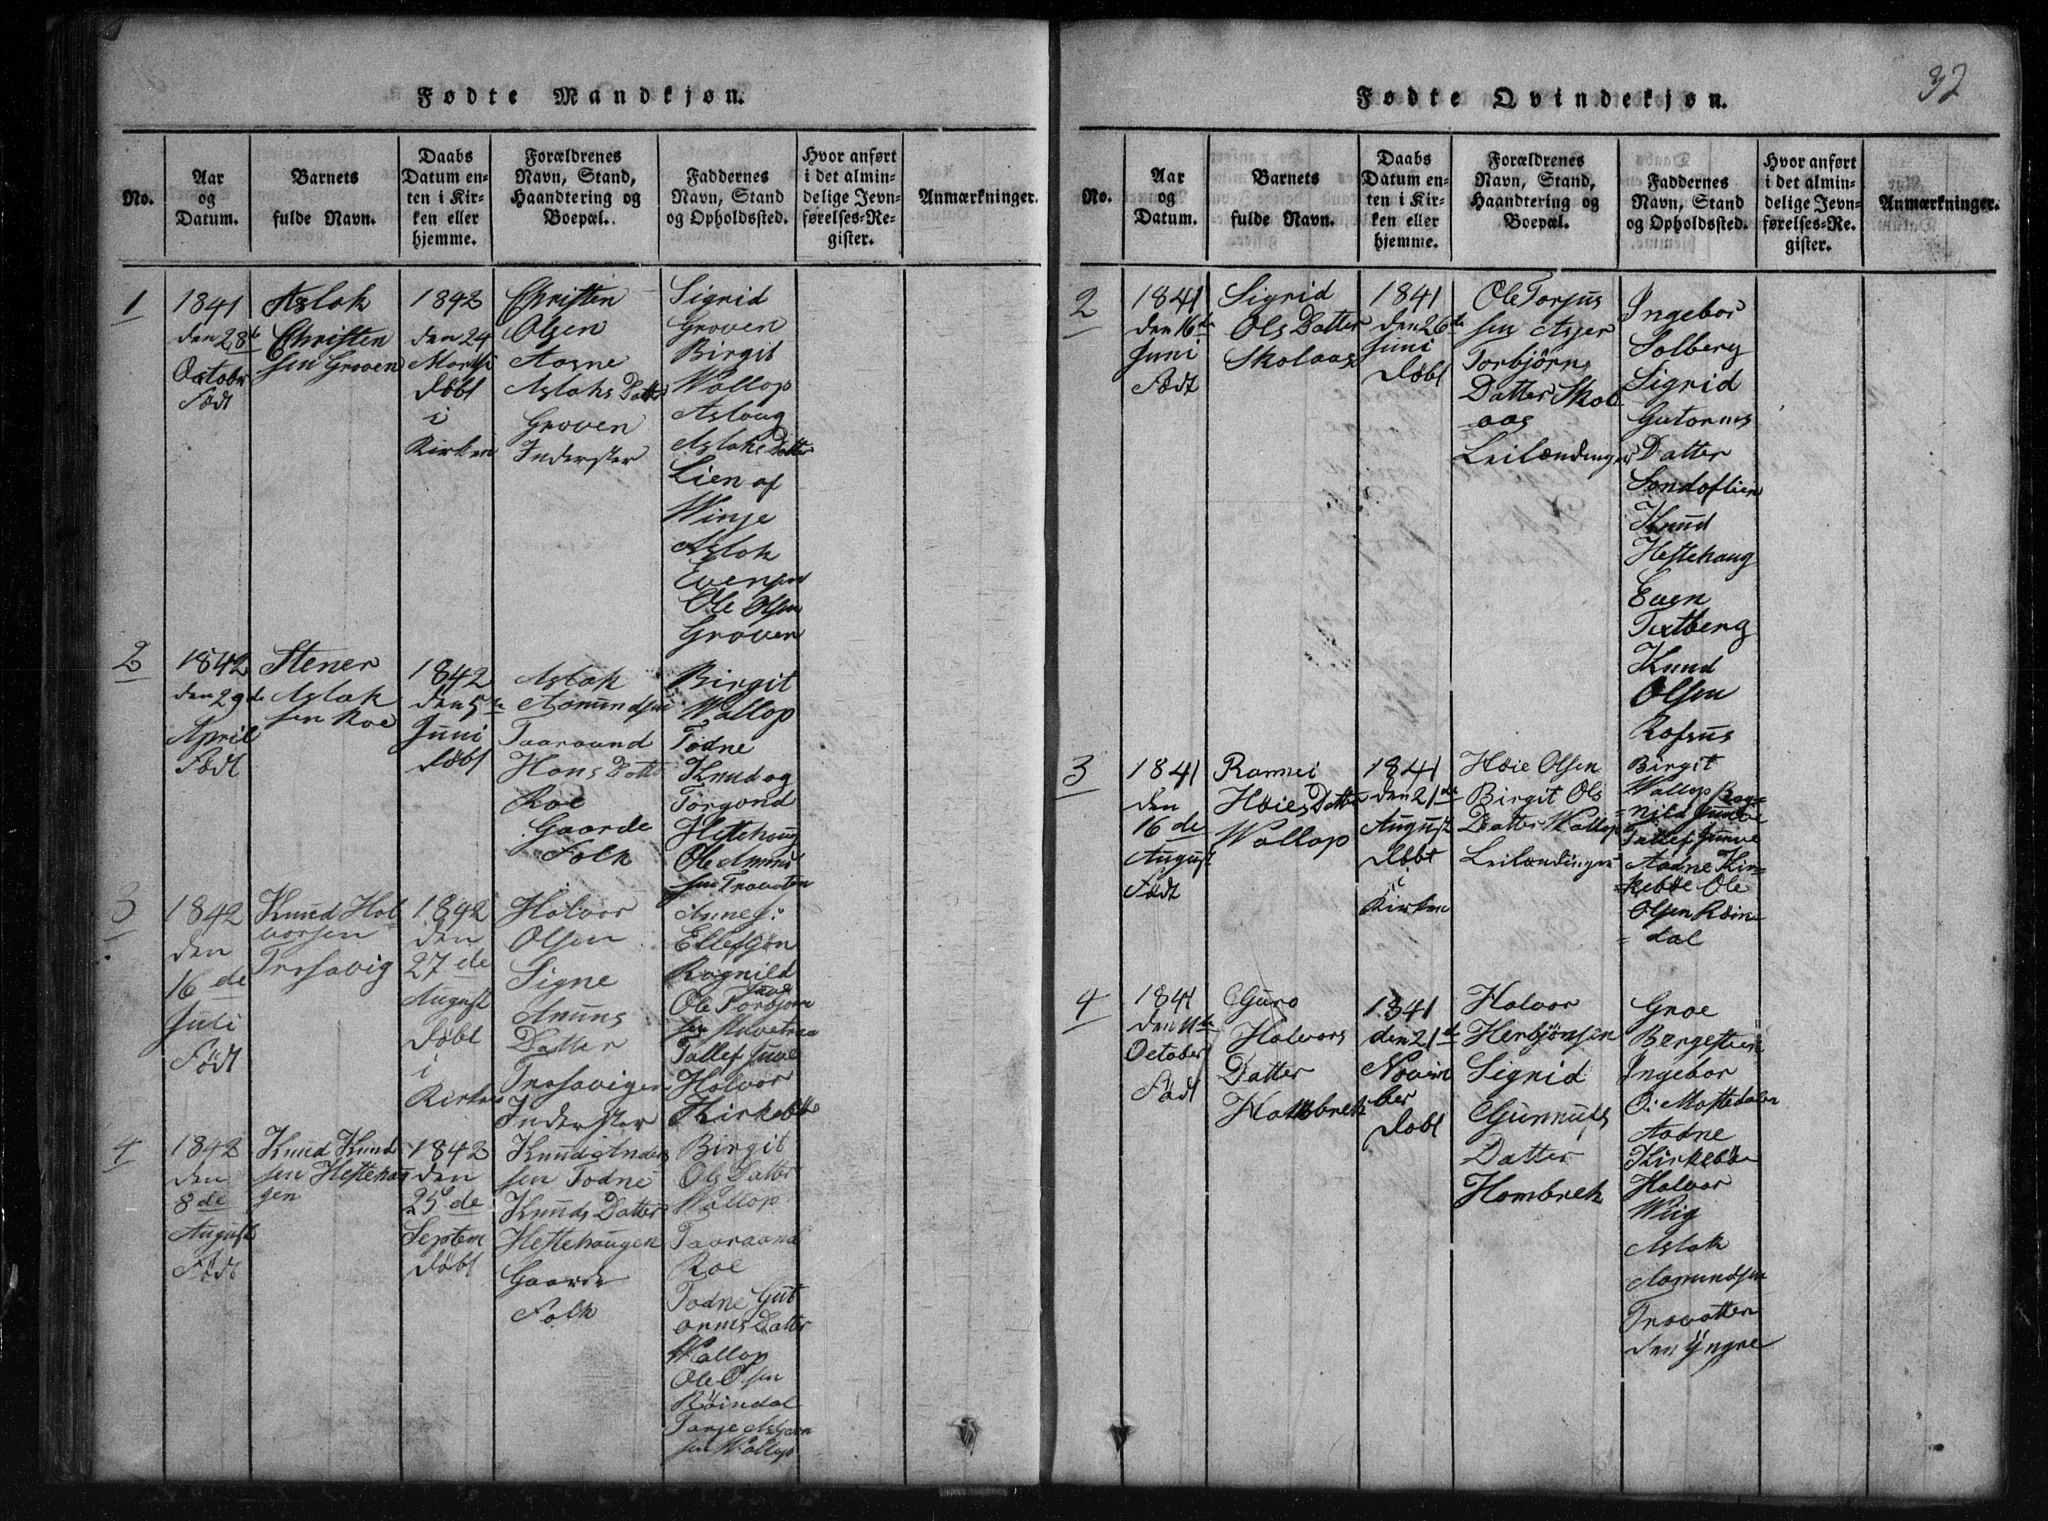 Fødte Mandkjøn.
No.
Aar
og
Datum.
Barnets
fulde Navn.
Daabs
Datum en-
ten i Kir-
ken eller
hjemme.
Forældrenes
Navn, Stand,
Haandtering og
Boepæl.
Faddernes
Navn, Stand
og Opholdssted.
Hvor anført
i det almin-
delige Jevn-
førelses-Re-
gister.
Anmærkninger.
1
1841
den 28de
Octobr
Födt
Aslak
Christen
sen Groven
1842
den 24
Martsi
Döbt
i
Kirken
Christen
Olsen
Aasne
Aslaks Datter
Groven
Inderster
Sigrid
Groven
Birgit
Wallop
Aslaug
Aslaks Datter
Lien af
Winje
Aslak
Evensen
Ole Olsen
Groven
2
1842
den 29de
April
Födt
Stener
Aslak
sen Roe
1842
den 5te
Juni
Döbt
Aslak
Aamundsen
Taaraand
Hans Datter
Roe
Gaarde
Folk
Birgit
Wallop
Todne
Knud og
Torgond
Hestehaug
Ole Amun
sen Trovaten
3
1842
den
16de
Juli
Födt
Knud Hal
vorsen
Trosavig
1842
den
27de
August
Döbt
i
Kirken
Halvor
Olsen
Signe
Amuns
Datter
Trosavigen
Inderster
Anne
Ellefsjön
Rognild
Ole Torbjörn
sen
Tallef Juve
Halvor
Kirkebö
4
1842
den
8de
August
Födt
Knud Knud
sen Hestehau
gen
1842
den
25de
Septem
Döbt
Knud Anders
sen Todne
Knuds Datter
Hestehaugen
Gaarde
Folk
Birgit
Ols Datter
Wallop
Taaraand
Roe
Todne Gut
orms Datter
Wallop
Ole Olsen
Röindal
Tarje Asbjörn
sen Wallop
32
Fødte Qvindekjøn.
No.
Aar
og
Datum.
Barnets
fulde Navn.
Daabs
Datum en-
ten i Kir-
ken eller
hjemme.
Forældrenes
Navn, Stand,
Haandtering og
Boepæl.
Faddernes
Navn, Stand
og Opholdssted.
Hvor anført
i det almin-
delige Jevn-
førelses-Re-
gister.
Anmærkninger.
2
1841
den 16de
Juni
Födt
Sigrid
Ols Datter
Skolaas
1841
den 26de
Juni
Döbt
Ole Torjus
sen Asjer
Torbjörns
Datter Skol
aas
Leilændinger
Ingebor
Solberg
Sigrid
Gutorms
Datter
Sondoflien
Knud
Hestehaug
Even
Textberg
Knud
Olsen
Rofsus
3
1841
den
16de
August
Födt
Rannei
Höies Datter
Wallop
1841
den 21de
August
Döbt
i
Kirken
Höie Olsen
Birgit Ols
Datter Wallop
Leilændinger
Birgit
Wallop Rog=
=nild Juuve
Tallef Juuve
Aadne Kir=
=kebøe Ole
Olsen Röin=
=dal
4
1841
den 11te
October
Födt
Guro
Halvors
Datter
Hombrek
1841
den 21de
Novem
ber
Döbt
Halvor
Herbjönsen
Sigrid
Gunnufs
Datter
Hombrek
Groe
Bergestien
Ingebor
O: Mostedalen
Aadne
Kirkebö
Halvor
Wiig
Aslak
Aamundsen
Trovatten
den Yngre